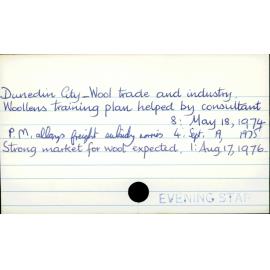 Dunedin City - Wool trade and industry.
Woollens training plan helped by consultant
8: May 18, 1974
P.M. allays freight subsidy worries 4: Sept. 19, 1975
Strong market for wool expected, 1: Aug 17, 1976.
EVENING STAR